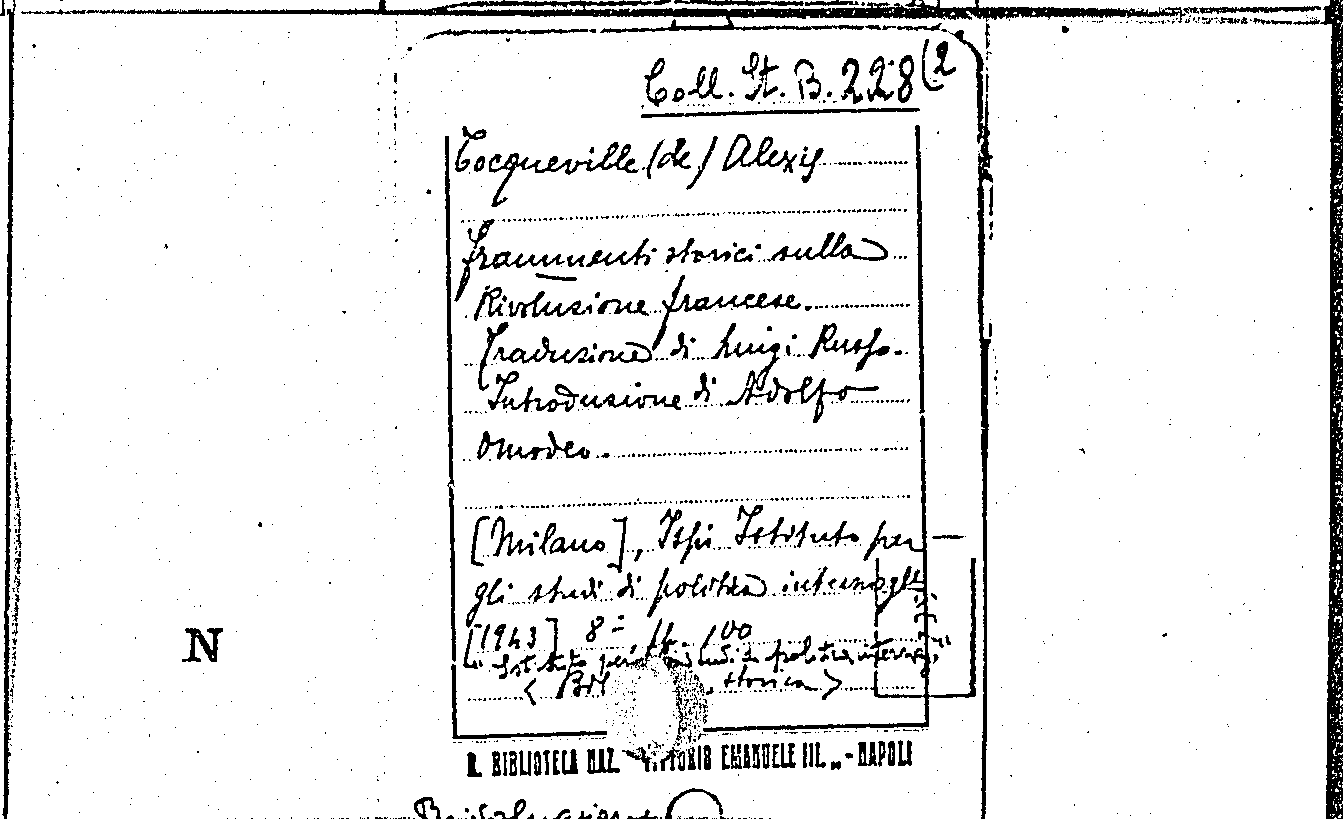 Coll. St. B. 228(2
Tocqueville (de) Alexis
Frammenti storici sulla
Rivoluzione francese.
Traduzione di Luigi Russo.
Introduzione di Adolfo
Omodeo.
[Milano], Ispi Istituto per
gli studi di politica internazle
[1943] 8° pp. 100
Istituto per studi di politica internaz."
< storica >
R. BIBLIOTECA NAZ. VITTORIO EMANUELE III. „ - NAPOLI
N